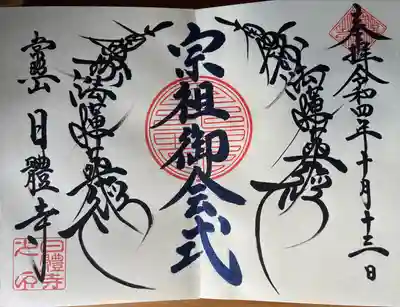 奉拝 令和四年十月十三日
南無妙法蓮華経
宗祖御会式
南無妙法蓮華経
日體寺